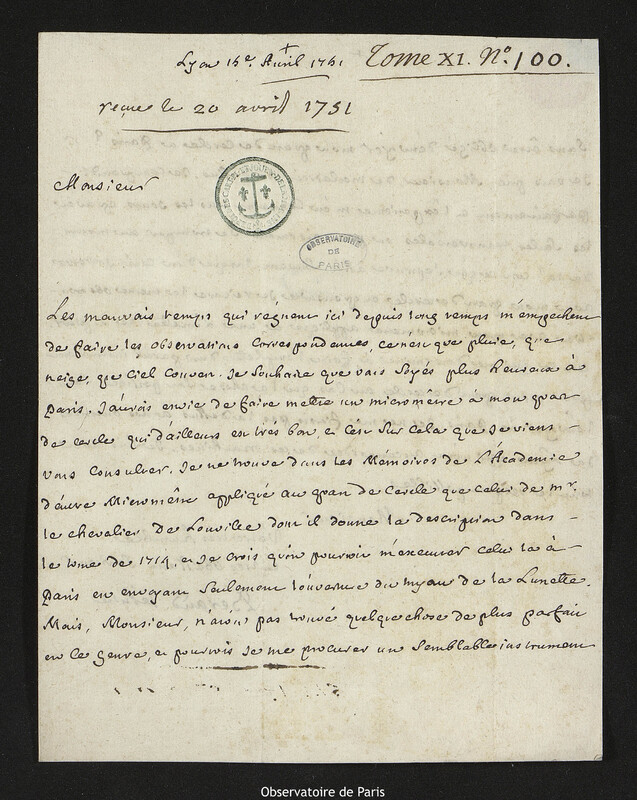 Lyon 15e. Avril 1751 Tome XI. No. 100.
reçue le 20 avril 1751
Monsieur
OBSERVATOIRE
DE
PARIS
Les mauvais temps qui régnent ici depuis long temps m'empechent
de faire les observations Correspondances, ce n'est que pluie, que
neige, que Ciel Couvert. Je Souhaite que vous Soyés plus heureux à
Paris. J'aurois envie de faire mettre un micromètre à mon quar
de cercle qui d'ailleurs est très bon, et C'est Sur cela que Je viens
vous Consulter. Je ne trouve dans les Mémoires de L'Académie
d'autre Micromètre appliqué au quart de Cercle que Celui de mr.
le chevalier de Louville dont il donne la description dans
le tome de 1714. et Je Crois qu'on pourroit m'executer celui là à
Paris en envoyant Seulement l'ouverture du tuyau de la Lunette.
Mais, Monsieur, n'a-t-on pas trouvé quelque chose de plus parfait
en ce genre, et pourrois Je me procurer un Semblable instrument
Observatoire de Paris